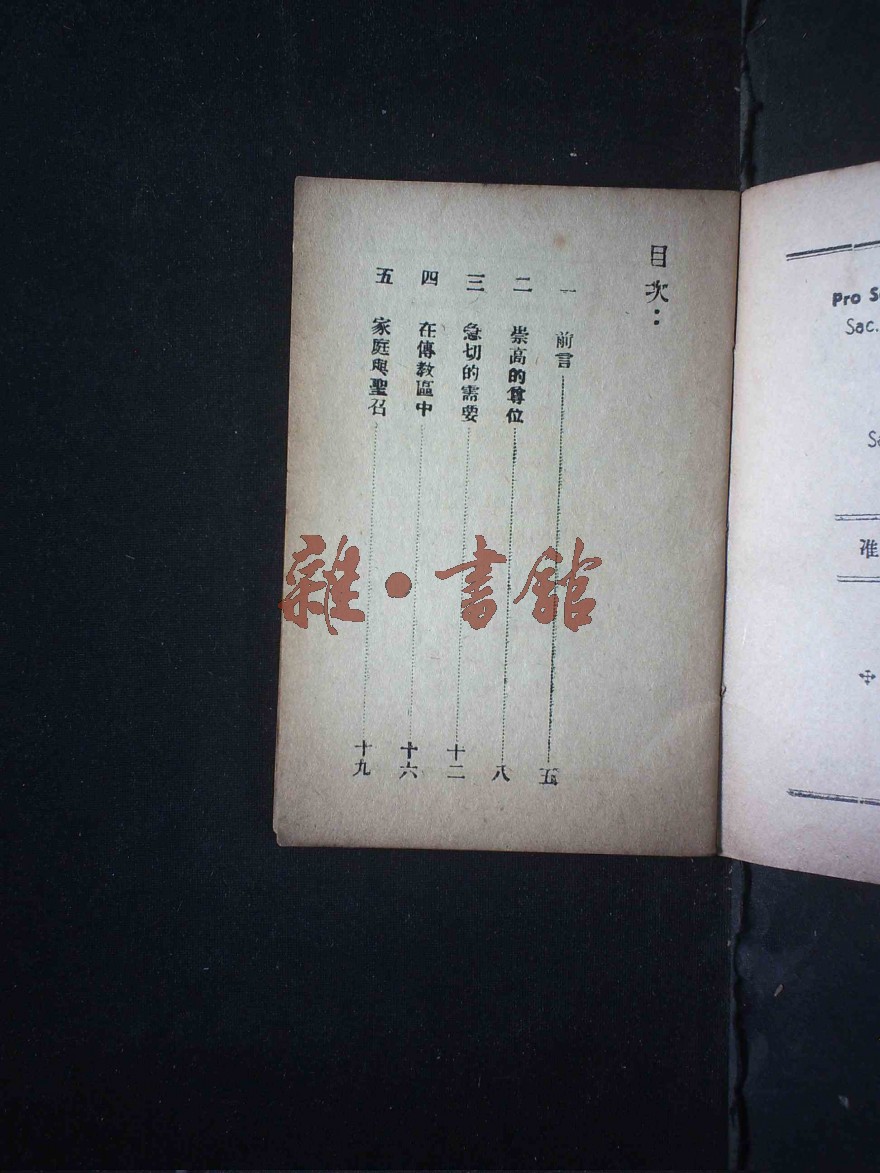 目次：
一 前言 五
二 崇高的尊位 八
三 急切的需要 十二
四 在傳教區中 十六
五 家庭與聖召 十九
雜·書館
Pro S
Sac.
S
准